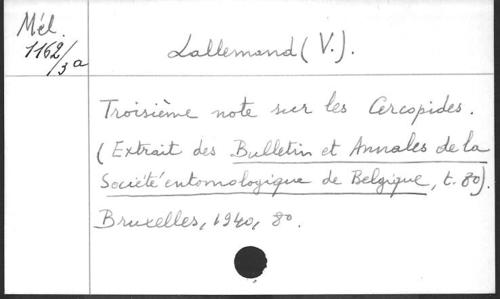 Mél.
1162/3a
Lallemand (V.).
Troisième note sur les Cercopides.
(Extrait des Bulletin et Annales de la
Société entomologique de Belgique, t. 80).
Bruxelles, 1940, 8o.